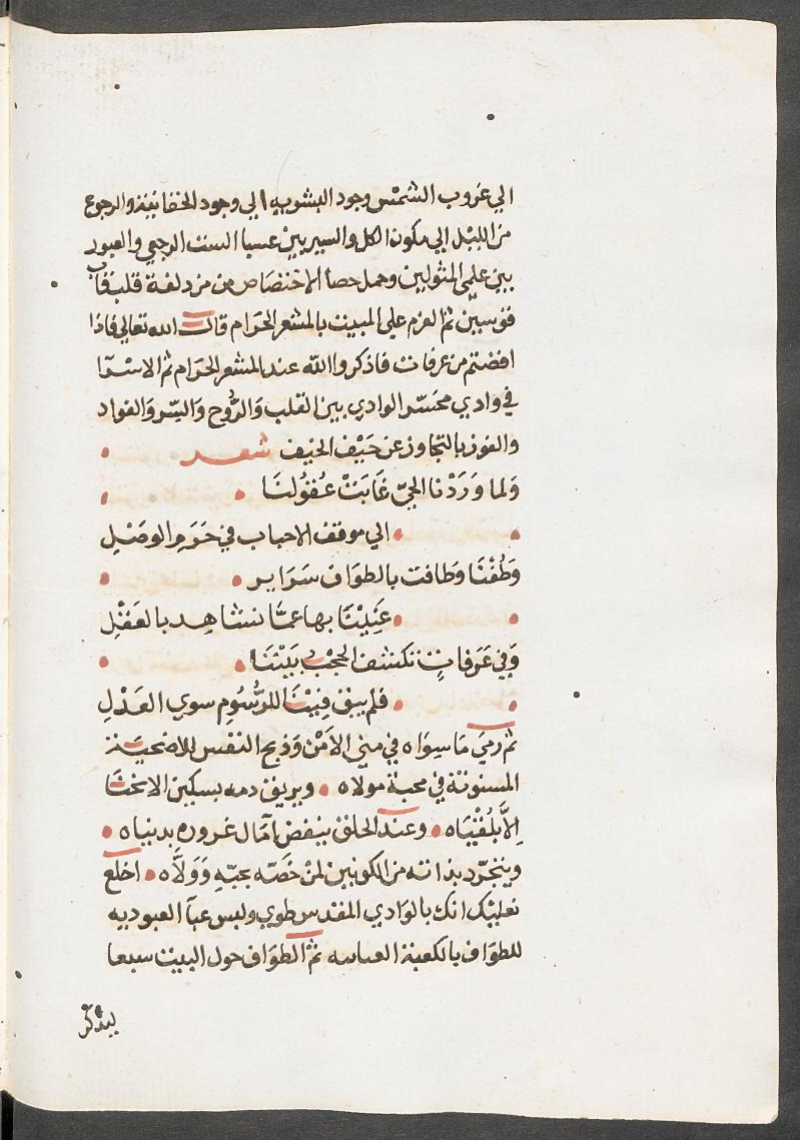 الي غروب الشمس وجود البشويه الي وجود الحقانية والرجوع
من الليل الي مكون الكل والسير بين عسبا الست الرجبي والعبور
بين علمي المثولين وحمل حصا الاختصاص من مزدلفة قلب قاب
قوسين ثم العزم علي المبيت بالمشعر الحرام قال الله تعالي فاذا
افضتم من عرفات فاذكروا الله عند المشعر الحرام ثم الاسرا
في وادي محسّر الوادي بين القلب والرُّوح والسّر والفواد
والفوز بالتجاوز عن خَيْف الخيف شعر
وَلما وَرَدْنا الحيّ غَابَتْ عُقُولنَا
الي موقف الاحباب في حَرَمِ الوصْلِ
وَطُفْنَا وَطافت بالطوَاف سَرَاير
غَنِيْنَا بها عمَّا نشاهد بالعَقْلِ
وَفي عَرَفاتٍ تكشف الحجْبُ بَيْنَنَا
فلم يبق فِيْنَا للرُّسُومِ سوي العَدْلِ
ثم رميَ مَا سِوَاه في مني الاَمْنِ وَذبح النفس للاضحيَة
المسنونة في محبة مولاه ويريق دمه بسكين الانحنَا
اِلاَّ بلُقْيَاه وعند الحلق ينفض آمَال غروره بدنياه
ويتجرّد بذاته من الكونين لمنْ خَصّه بحبّه وَوَلاَّه اخلَع
نعليْك انك بالوَادي المقدس طوي ولبس عبآ العبوديه
للطوَاف بالكعبة العباسه ثم الطوَاف حول البيت سبعا
ليذكر